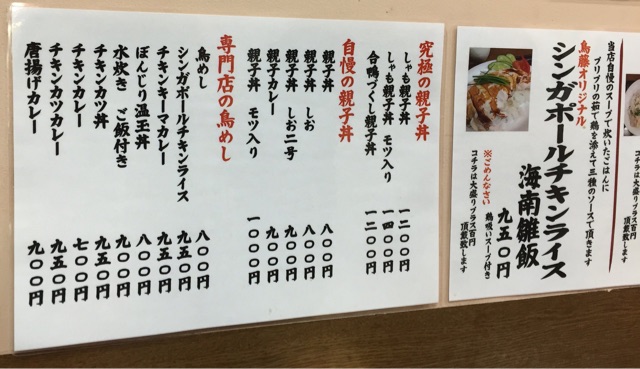 当店自慢のスープで炊いたごはんに
プリプリの茹で鶏を添えて三種のソースで頂きます
コチラは大盛りプラス百円
頂戴致します
鳥藤オリジナル
シンガポールチキンライス
海南雞飯
九五〇円
鶏吸いスープ付き
※ごめんなさい
コチラは大盛りプラス百円
頂戴致します
究極の親子丼
しゃも親子丼 一二〇〇円
しゃも親子丼 モツ入り 一四〇〇円
合鴨づくし親子丼 一二〇〇円
自慢の親子丼
親子丼 八〇〇円
親子丼 しお 八〇〇円
親子丼 しお二号 九〇〇円
親子丼カレー 九〇〇円
親子丼 モツ入り 一〇〇〇円
専門店の鳥めし
鳥めし 八〇〇円
シンガポールチキンライス 九五〇円
チキンキーマカレー 九五〇円
ぼんじり温玉丼 八〇〇円
水炊き ご飯付き 九〇〇円
チキンカツ丼 九五〇円
チキンカレー 七〇〇円
チキンカツカレー 九五〇円
唐揚げカレー 九〇〇円